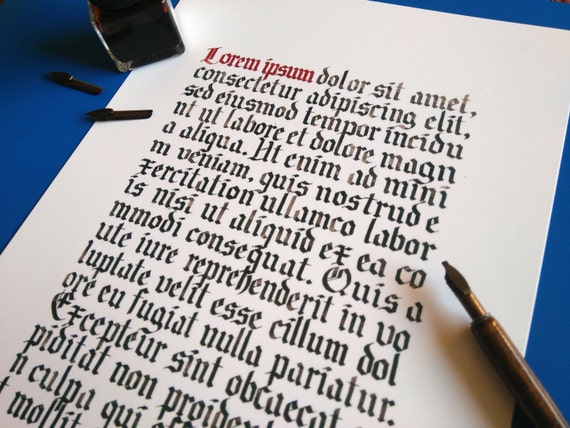 Lorem ipsum dolor sit amet,
consectetur adipiscing elit,
sed eiusmod tempor incidu
nt ut labore et dolore magn
a aliqua. Ut enim ad mini
m veniam, quis nostrud e
xercitation ullamco labor
is nisi ut aliquid ex ea co
mmodi consequat. Quis a
ute iure reprehenderit in vo
luptate velit esse cillum dol
ore eu fugiat nulla pariatur.
Excepteur sint obcaecat
piditat non proident
n culpa qui
t mollit